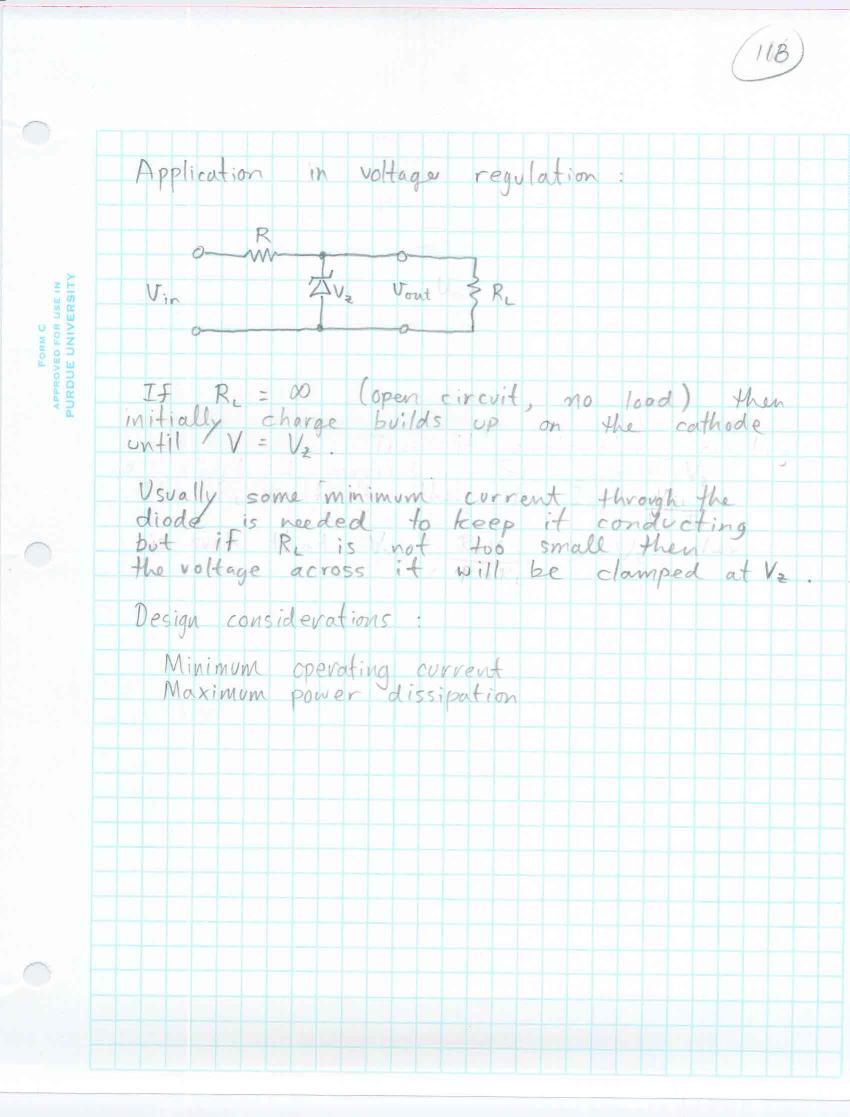 11B
FORM C
APPROVED FOR USE IN
PURDUE UNIVERSITY
Application in voltage regulation :
R
Vin
Vz
Vout
RL
If RL = ∞ (open circuit, no load) then
initially charge builds up on the cathode
until V = Vz .
Usually some minimum current through the
diode is needed to keep it conducting
but if RL is not too small then
the voltage across it will be clamped at Vz .
Design considerations :
Minimum operating current
Maximum power dissipation